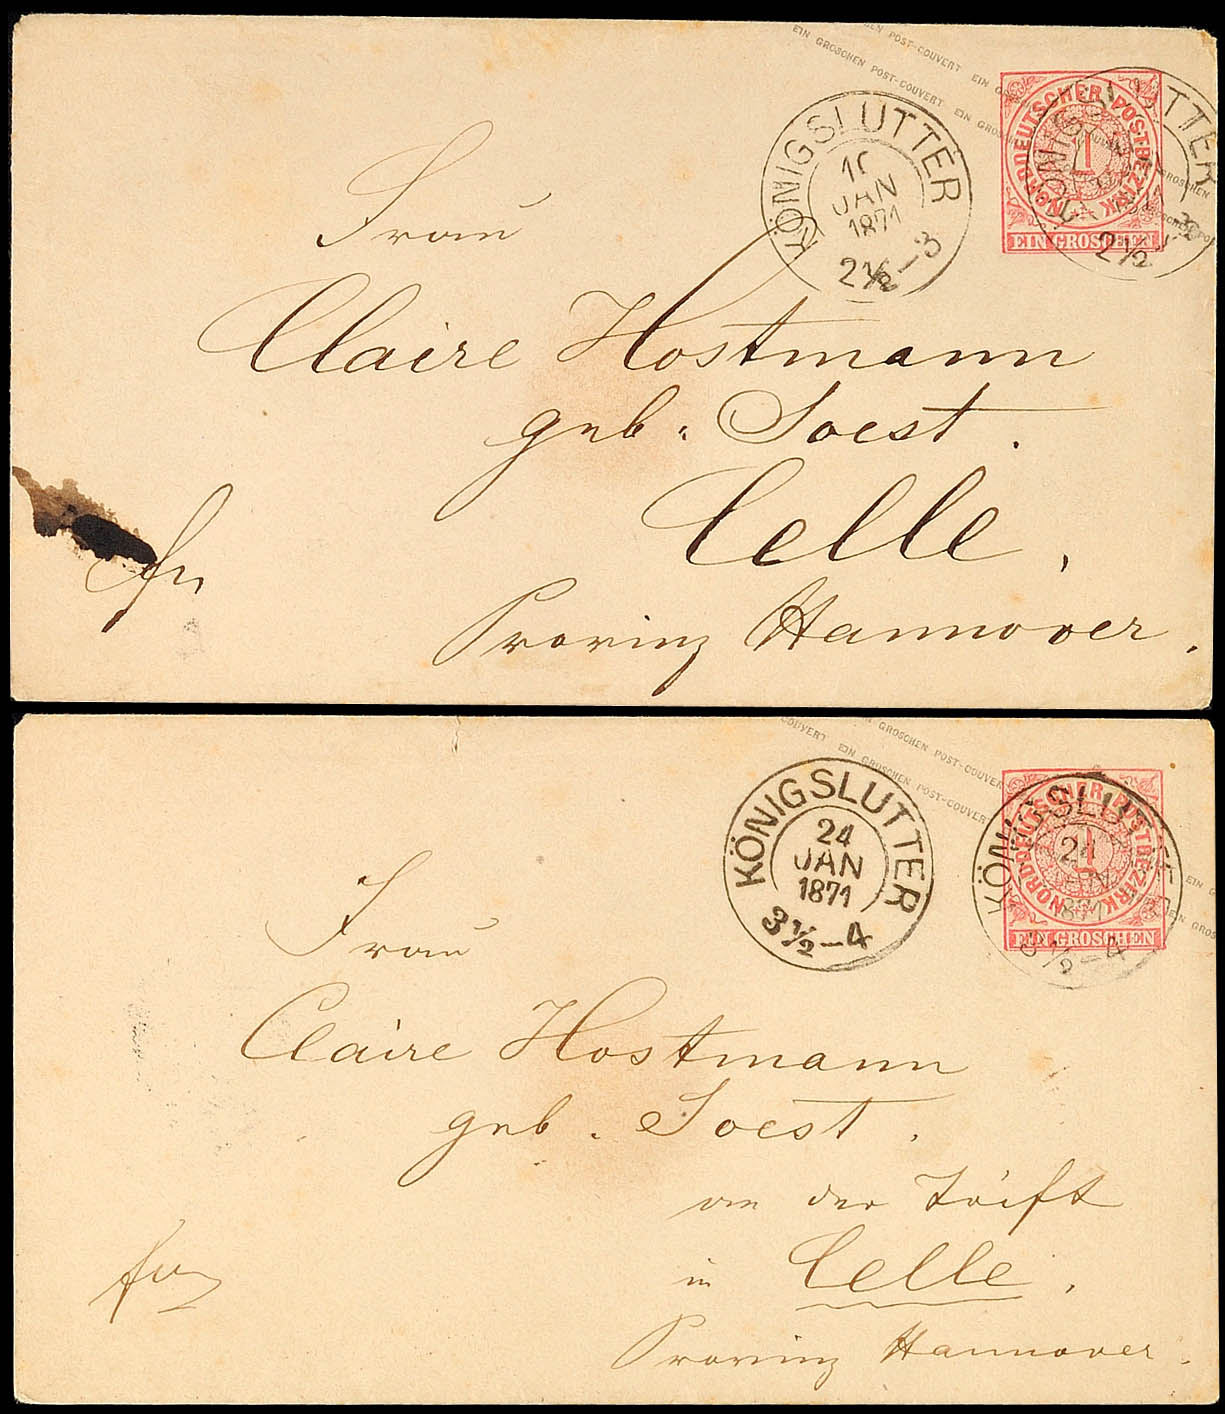 EIN GROSCHEN POST-COUVERT EIN GROSCHEN
KÖNIGSLUTTER
JAN
1871
2½-3
NORDDEUTSCHER POSTBEZIRK
1
EIN GROSCHEN
KÖNIGSLUTTER
2½
Frau
Claire Hostmann
geb. Soest.
Celle,
fr.
Provinz Hannover.
EIN GROSCHEN POST-COUVERT
EIN GROSCHEN POST-COUVERT
KÖNIGSLUTTER
24
JAN
1871
3½-4
NORDDEUTSCHER POSTBEZIRK
1
EIN GROSCHEN
KÖNIGSLUTTER
24
JAN
1871
3½-4
Frau
Claire Hostmann
geb. Soest.
an der Trift
in Celle,
Provinz Hannover.